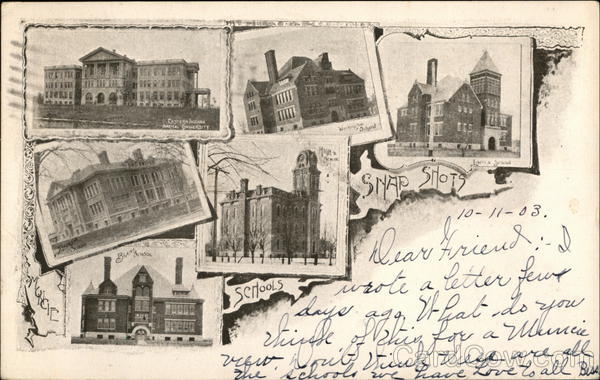 EASTERN INDIANA
NORMAL UNIVERSITY
School
School
High
SNAP SHOTS
Blaine School
SCHOOLS
10-11-03.
Dear Friend:- I
wrote a letter few
days ago. What do you
think of this for a Muncie
view. Don't think these are all
the schools we have. Love to all.
CardCow.com